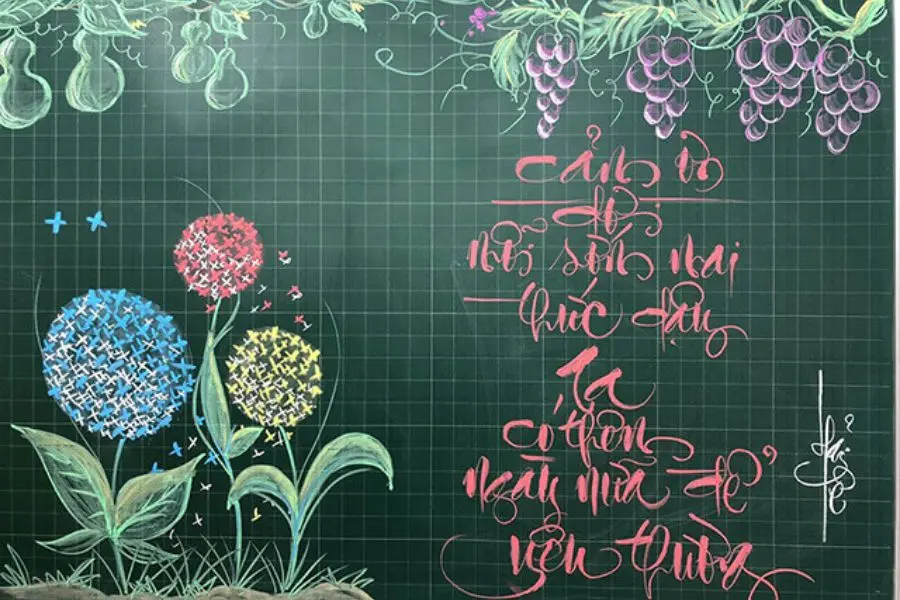 Cảm ơn
đời
mỗi sớm mai
thức dậy
Ta
có thêm
ngày nữa để
yêu thương